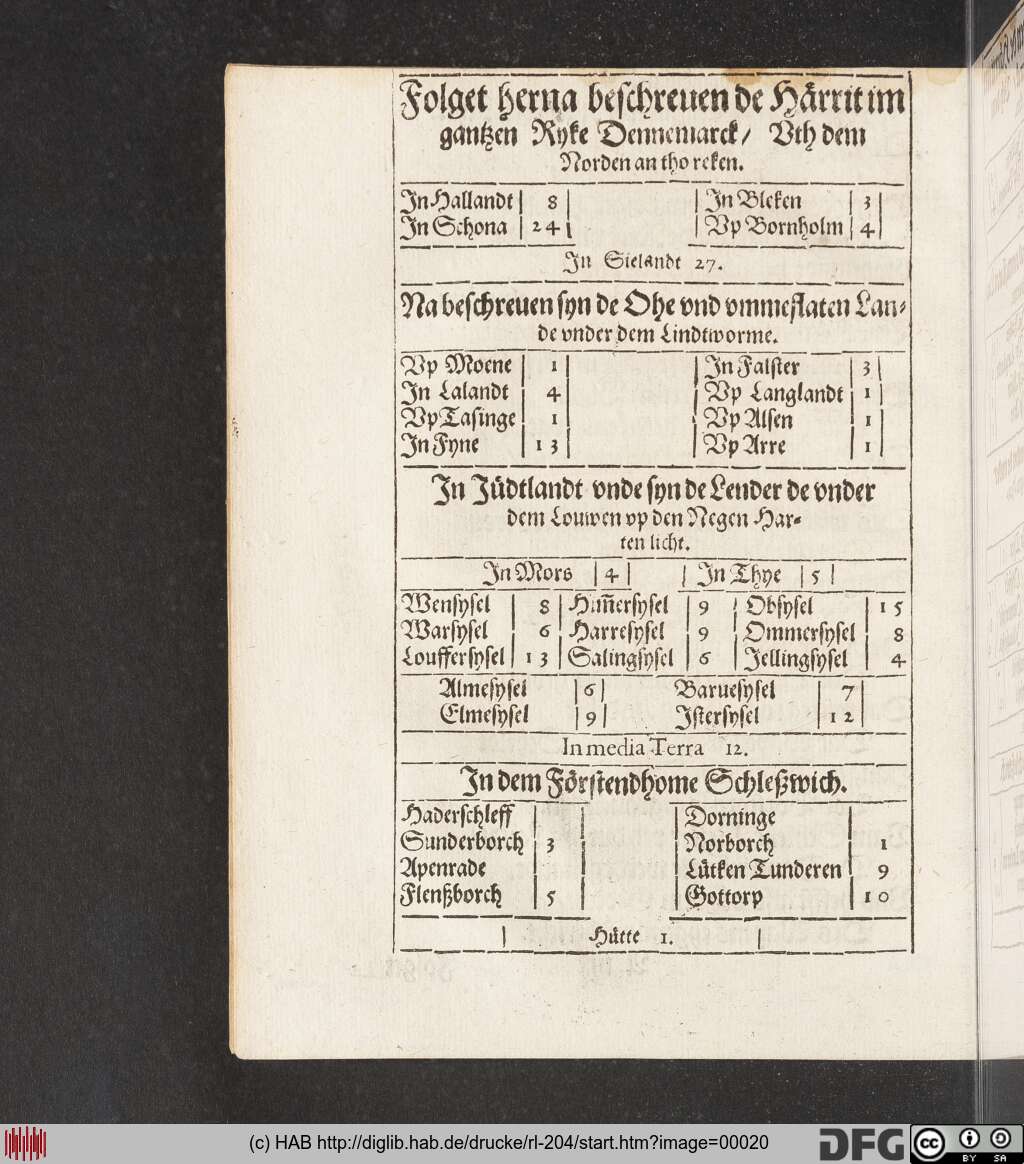 Folget herna beschreuen de Härrit im
gantzen Ryke Dennemarck/ Vth dem
Norden an tho reken.
In Hallandt 8 In Bleken 3
In Schona 24 Vp Bornholm 4
In Sielandt 27.
Na beschreuen syn de Ohe vnd vmmeflaten Lan=
de vnder dem Lindtworme.
Vp Moene 1 In Falster 3
In Lalandt 4 Vp Langlandt 1
Vp Tasinge 1 Vp Alsen 1
In Fyne 13 Vp Arre 1
In Jüdtlandt vnde syn de Lender de vnder
dem Louwen vp den Negen Har=
ten licht.
In Mors 4 In Thye 5
Wensysel 8 Him̃ersysel 9 Obsysel 15
Warsysel 6 Harresysel 9 Ommersysel 8
Louffersysel 13 Salingsysel 6 Jellingsysel 4
Almesysel 6 Baruesysel 7
Elmesysel 9 Istersysel 12
In media Terra 12.
In dem Förstendhome Schleßwich.
Haderschleff Dorninge
Sunderborch 3 Norborch 1
Apenrade Lütken Tunderen 9
Flenßborch 5 Gottorp 10
Hütte 1.
(c) HAB http://diglib.hab.de/drucke/rl-204/start.htm?image=00020
DFG
cc BY SA